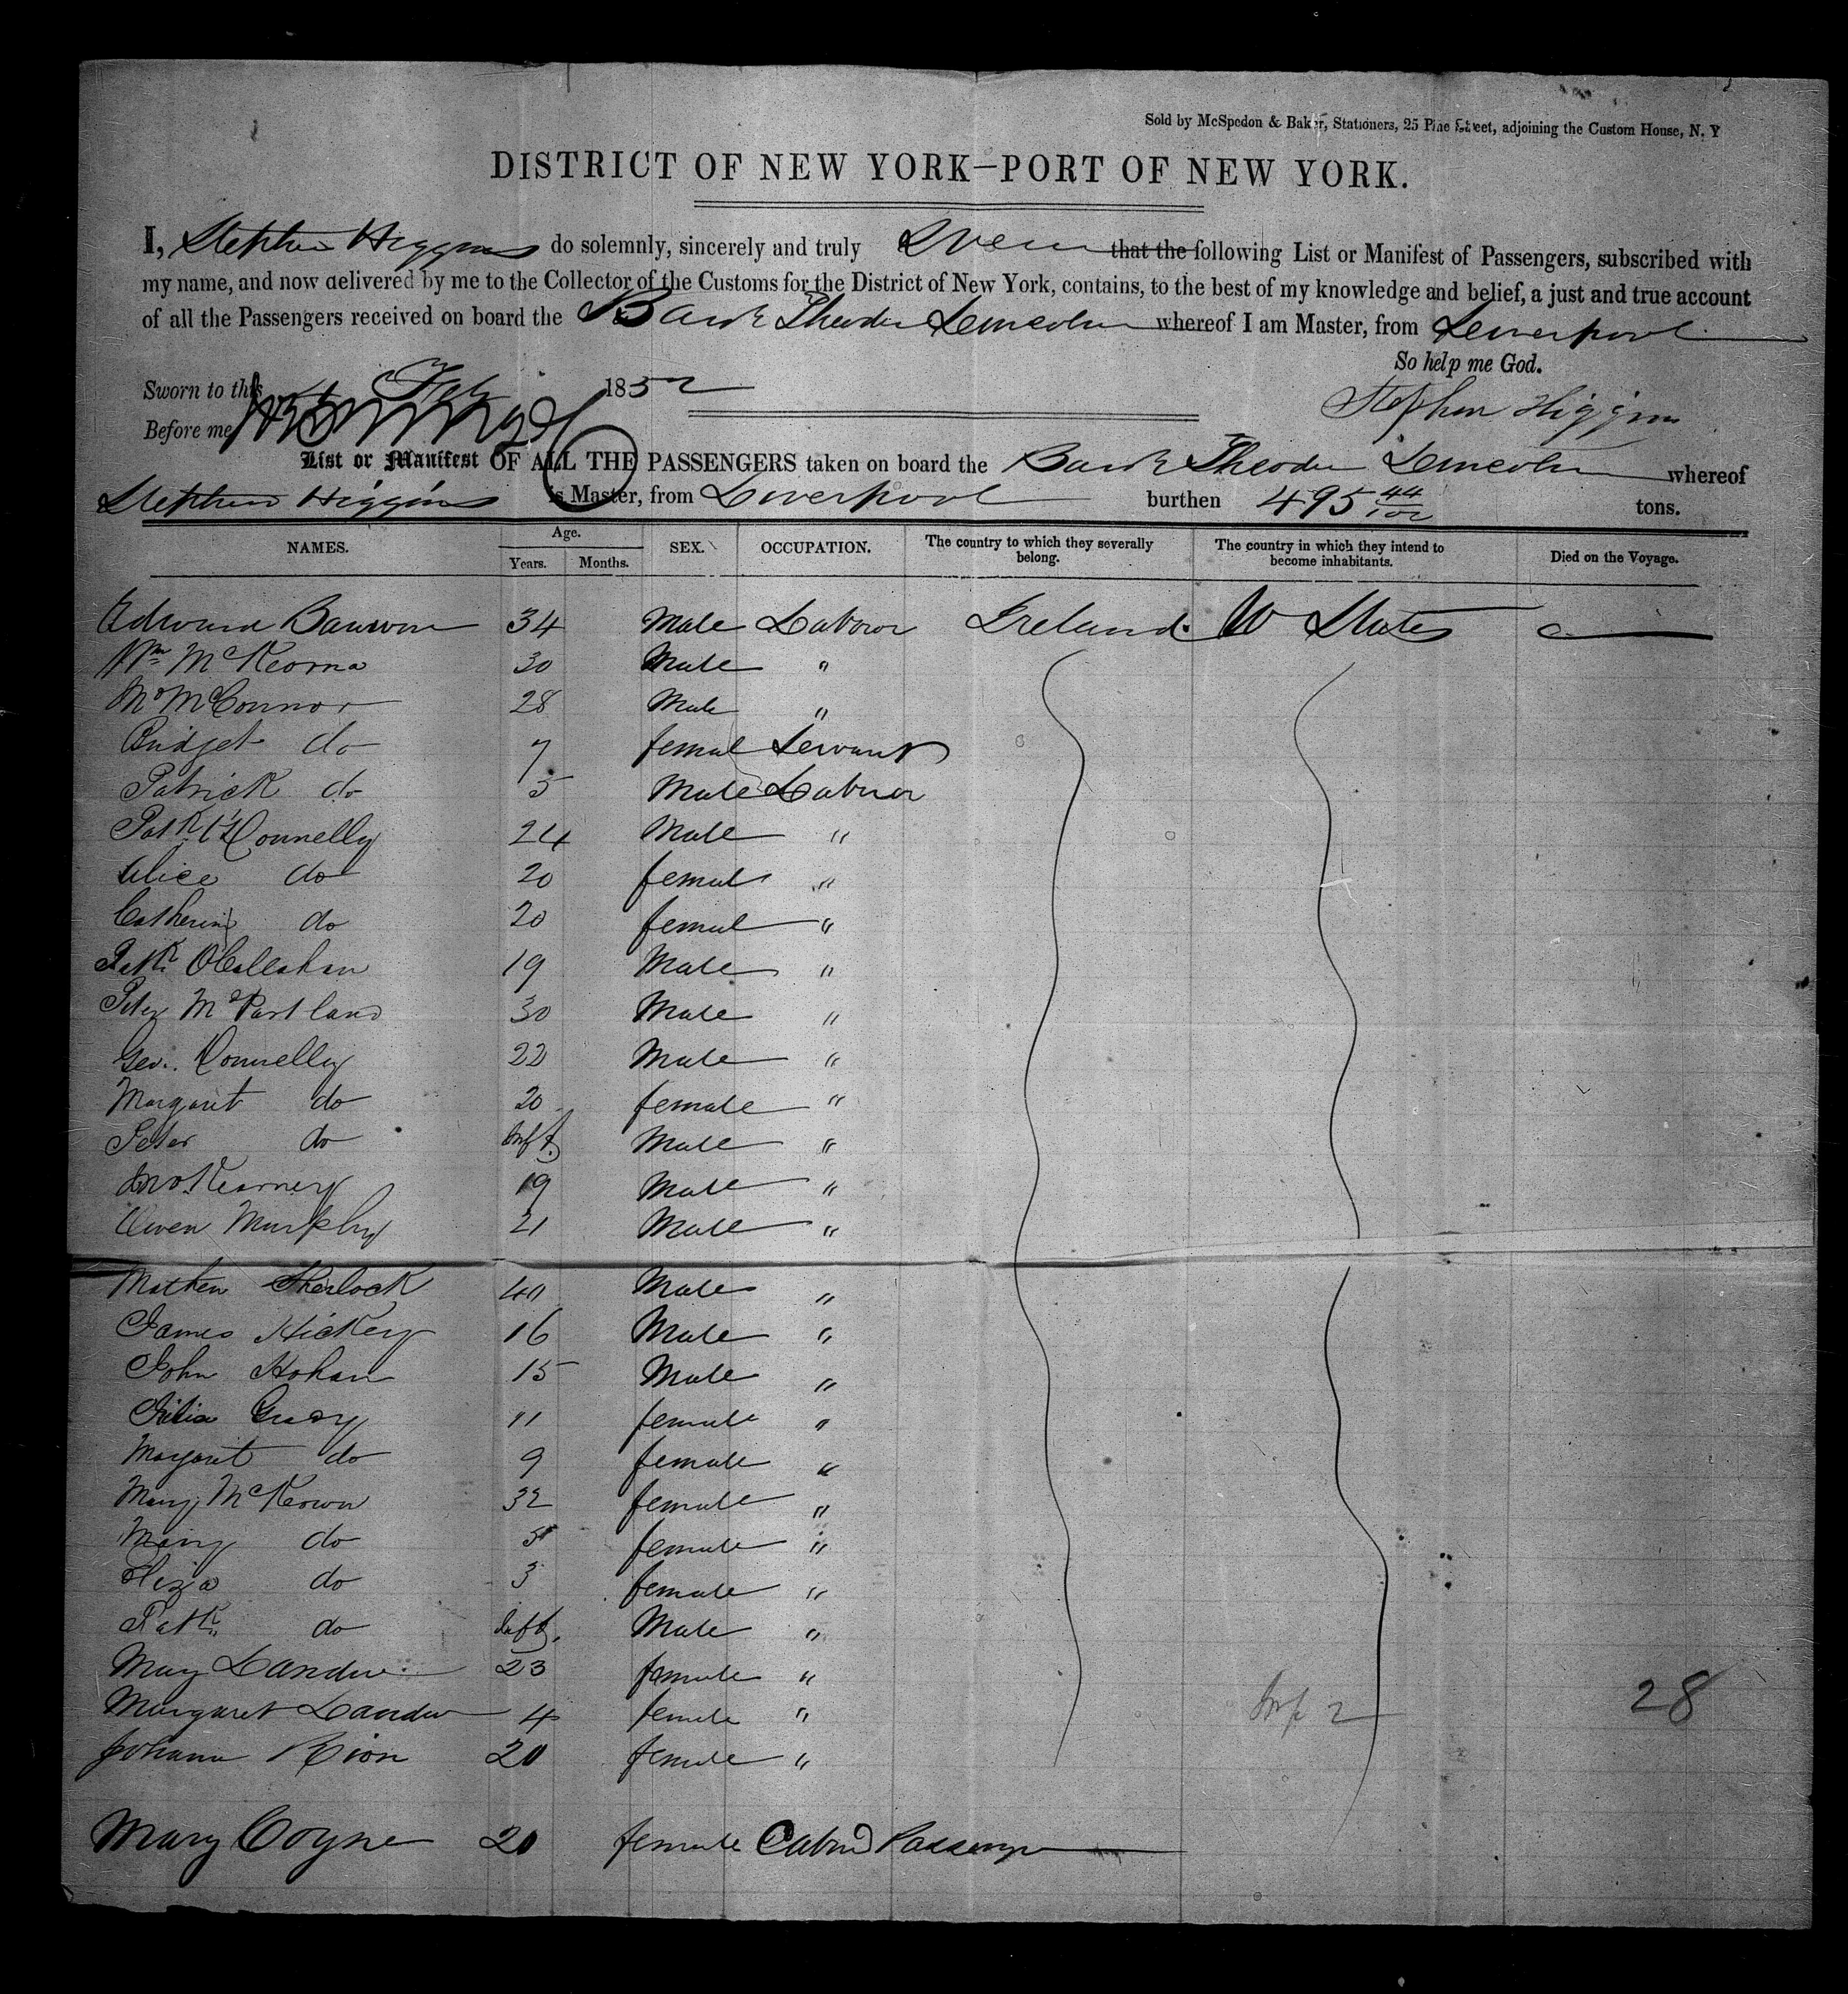 Sold by McSpedon & Baker, Stationers, 25 Pine Street, adjoining the Custom House, N. Y
DISTRICT OF NEW YORK—PORT OF NEW YORK.
I, Stephen Higgins do solemnly, sincerely and truly Swear that the following List or Manifest of Passengers, subscribed with
my name, and now delivered by me to the Collector of the Customs for the District of New York, contains, to the best of my knowledge and belief, a just and true account
of all the Passengers received on board the Bark Theodore Lincoln whereof I am Master, from Liverpool
So help me God.
Sworn to this Feb 1852
Stephen Higgins
Before me
List or Manifest OF ALL THE PASSENGERS taken on board the Bark Theodore Lincoln whereof
Stephen Higgins is Master, from Liverpool burthen 495 44/100 tons.
NAMES. Age. Years. Months. SEX. OCCUPATION. The country to which they severally belong. The country in which they intend to become inhabitants. Died on the Voyage.
Edward 34 Male Labour Ireland U States
Wm McKeorna 30 Male "
McConnor 28 Male "
Bridget do 7 femal Servant
Patrick do 5 Male Labour
Patk Connelly 24 Male "
Alice do 20 female "
Catherine do 20 femal "
Patk OCallahan 19 Male "
Peter McPartland 30 Male "
Geo. Connelly 22 Male "
Margaret do 20 female "
Peter do Inft. Male "
Jno Kearney 19 Male "
Owen Murphy 21 Male "
Mathew Sherlock 40 Male "
James Hickery 16 Male "
John Hohan 15 Male "
Grady 11 female "
Margaret do 9 female "
Mary McKeown 32 female "
Mary do 5 female "
Eliza do 3 female "
Patk do Inft. Male "
Mary 23 female "
Margaret 4 female " Inf 2 28
Johana Rion 20 female "
Mary Coyne 20 female Cabin Passenger